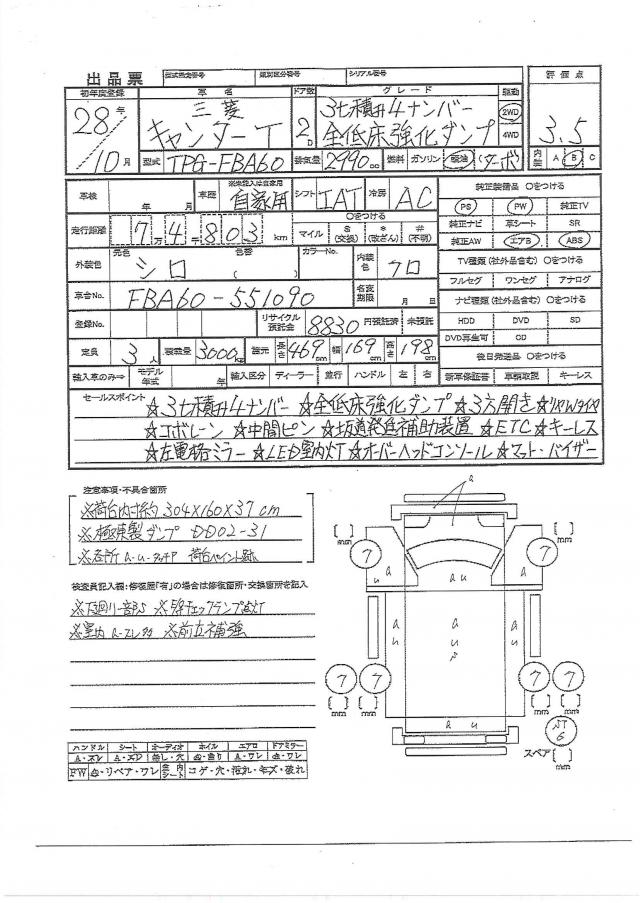 出品票 型式指定番号 類別区分番号 シリアル番号
初年度登録 車名 ドア数 グレード 駆動 評価点
28年 三菱 3t積載4ナンバー 2WD
キャンターT 2D 全低床強化ダンプ 4WD 3.5
10月 型式 TPG-FBA60 排気量 2990cc 燃料 ガソリン 軽油 ターボ 内装 A B C
車検 年 月 車歴 ※未記入は自家用 自家用 シフト IAT 冷房 AC
純正装備品 ○をつける
PS PW 純正TV
走行距離 7 4 8 0 3 km ○をつける マイル $(交換) *(改ざん) #(不明)
純正ナビ 革シート SR
純正AW エアB ABS
外装色 元色 シロ 色替 ( ) カラーNo. 内装色 クロ
TV種類(社外品含む) ○をつける
フルセグ ワンセグ アナログ
車台No. FBA60-551090 名変期限 月 日
ナビ種類(社外品含む) ○をつける
登録No. リサイクル預託金 8830 円預託済 未預託
HDD DVD SD
DVD再生可 CD
定員 3人 積載量 3000kg 諸元 長さ 469cm 幅 169cm 高さ 198cm
後日発送品 ○をつける
輸入車のみ⇒ モデル年式 年 輸入区分 ディーラー 並行 ハンドル 左 右 新車保証書 車輌取説 キーレス
セールスポイント ☆3t積載4ナンバー ☆全低床強化ダンプ ☆3方開き ☆リヤWタイヤ
☆コボレーン ☆中間ピン ☆坂道発進補助装置 ☆ETC ☆キーレス
☆左電格ミラー ☆LED室内灯 ☆オーバーヘッドコンソール ☆マット・バイザー
注意事項・不具合箇所
※荷台内寸約304×160×37cm
※極東製ダンプ DD02-31
※各所 a・u・タッチP 荷台ペイント跡
検査員記入欄:修復歴「有」の場合は修復箇所・交換箇所を記入
※下廻り一部S ※チェックランプ点灯
※室内 a・スレ ※前立補強
a
[ ] mm [ ] mm
7 a u a u 7
a u a u a u
7 7 7 7
[ ] mm [ ] mm
a u
スペア [ ] mm
ハンドル シート オーディオ ホイル エアロ ドアミラー
FW リペア・ワレ 内シート コゲ・穴・汚れ・キズ・破れ